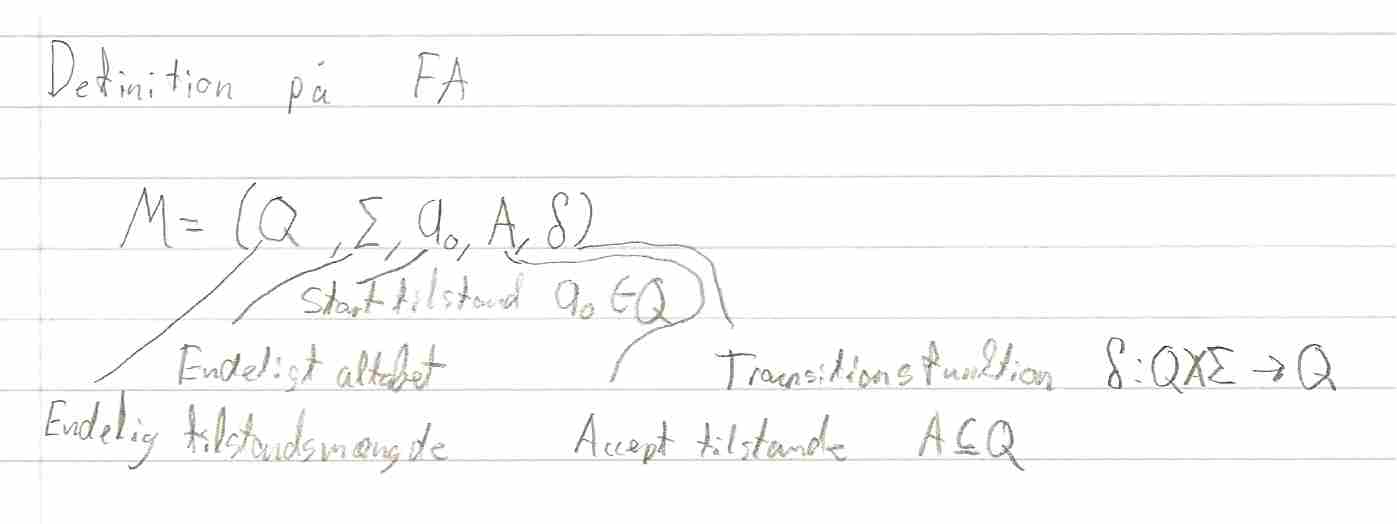 Definition på FA
M = (Q, Σ, q₀, A, δ)
Starttilstand q₀ ∈ Q
Endeligt alfabet
Transitionsfunktion δ: Q×Σ → Q
Endelig tilstandsmængde
Accept tilstande A ⊆ Q